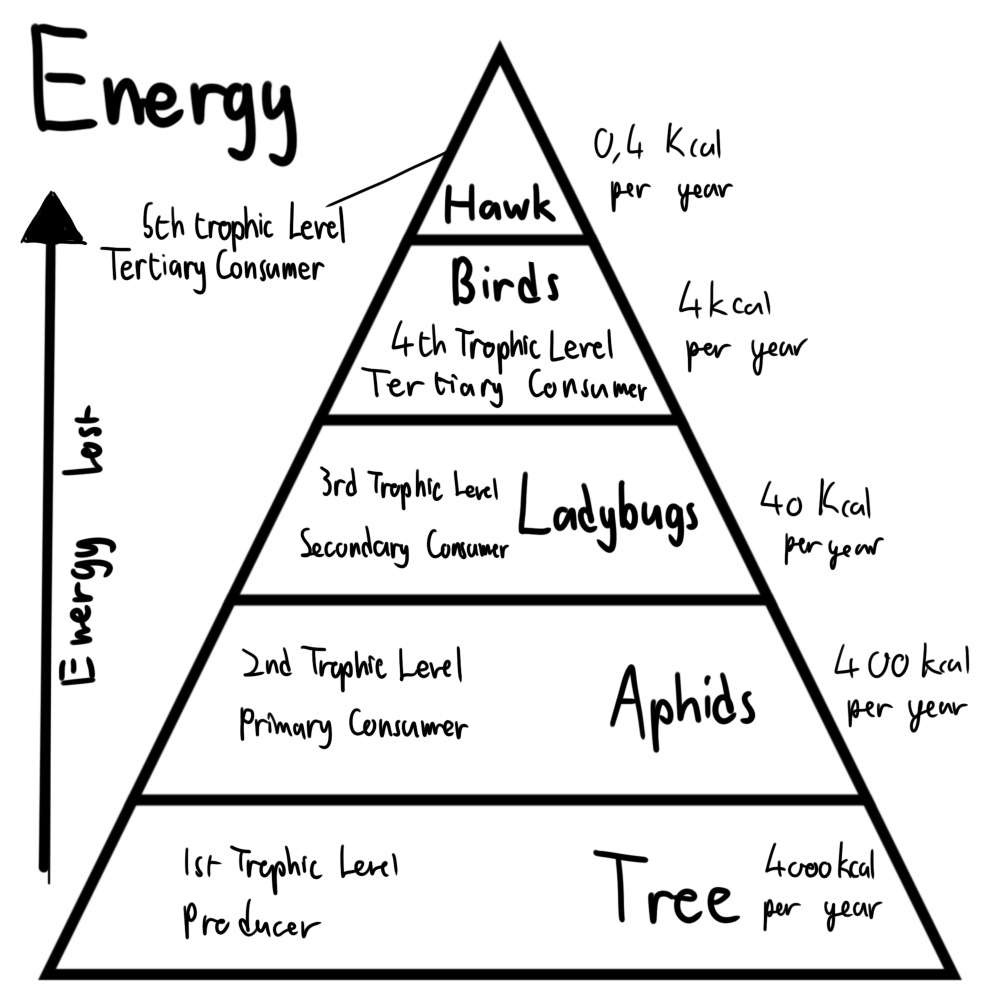 Energy
0,4 Kcal
per year
Hawk
5th trophic Level
Tertiary Consumer
Birds
4th Trophic Level
Tertiary Consumer
4kcal
per year
3rd Trophic Level
Secondary Consumer
Ladybugs
40 Kcal
per year
Energy Lost
2nd Trophic Level
Primary Consumer
Aphids
400 kcal
per year
1st Trophic Level
Producer
Tree
4000kcal
per year